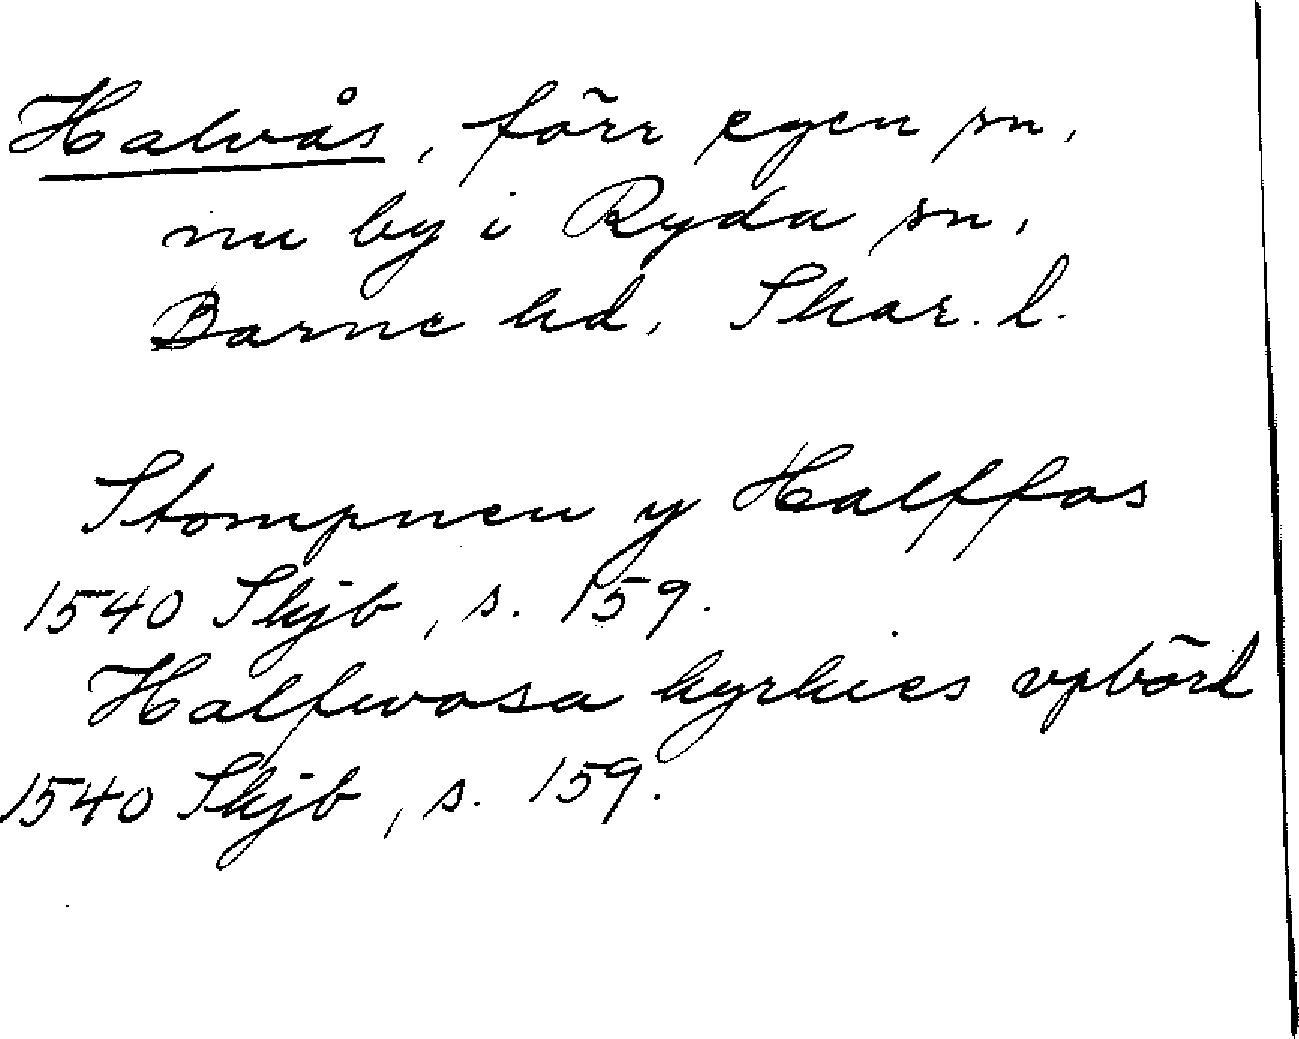 Halvås, förr egen sn,
nu by i Ryda sn,
Barne hd, Skar. l.
Stompnen y Halffas
1540 Skjb, s. 159.
Halfwosa kyrkies vpbörd
1540 Skjb, s. 159.